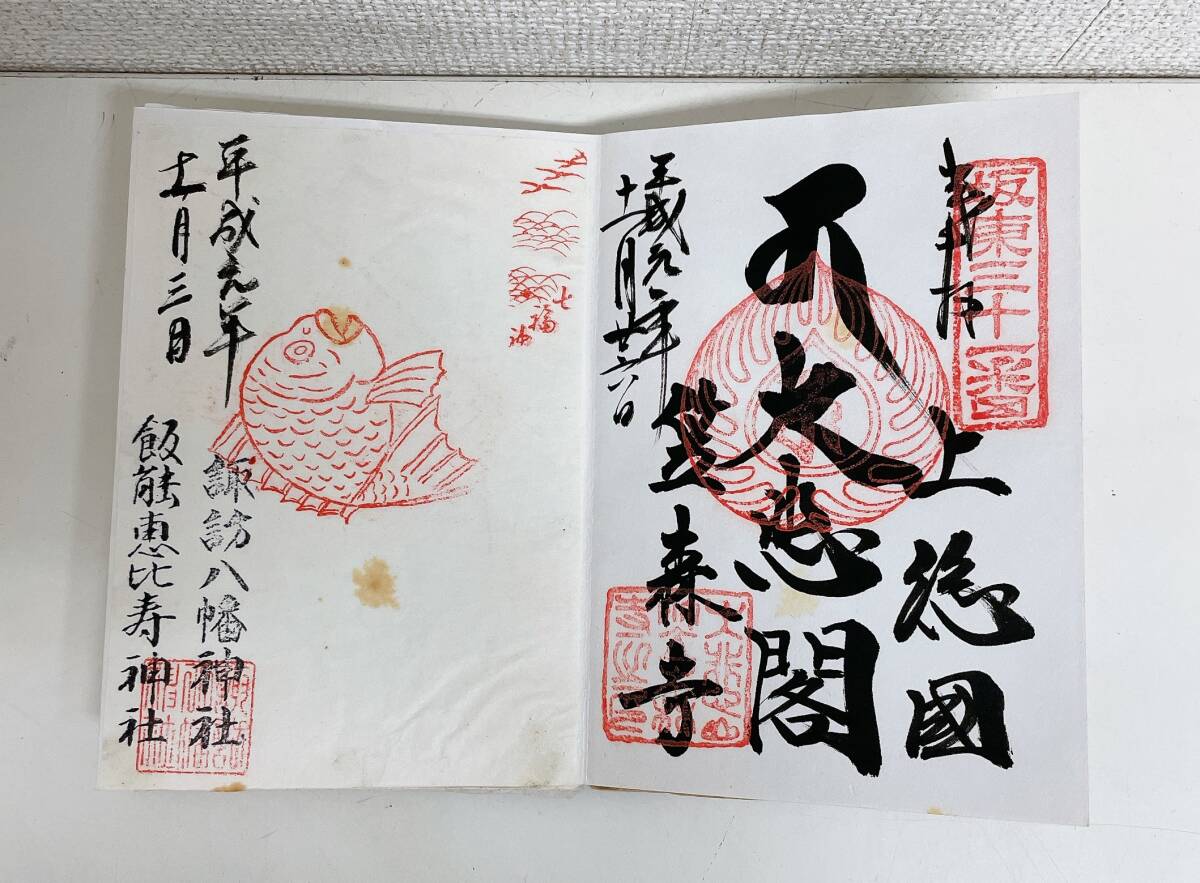 坂東三十一番
奉拝
上総國
大悲閣
平成元年
十一月廿六日
笠森寺
七福神
平成元年
十一月三日
諏訪八幡神社
飯能恵比寿神社